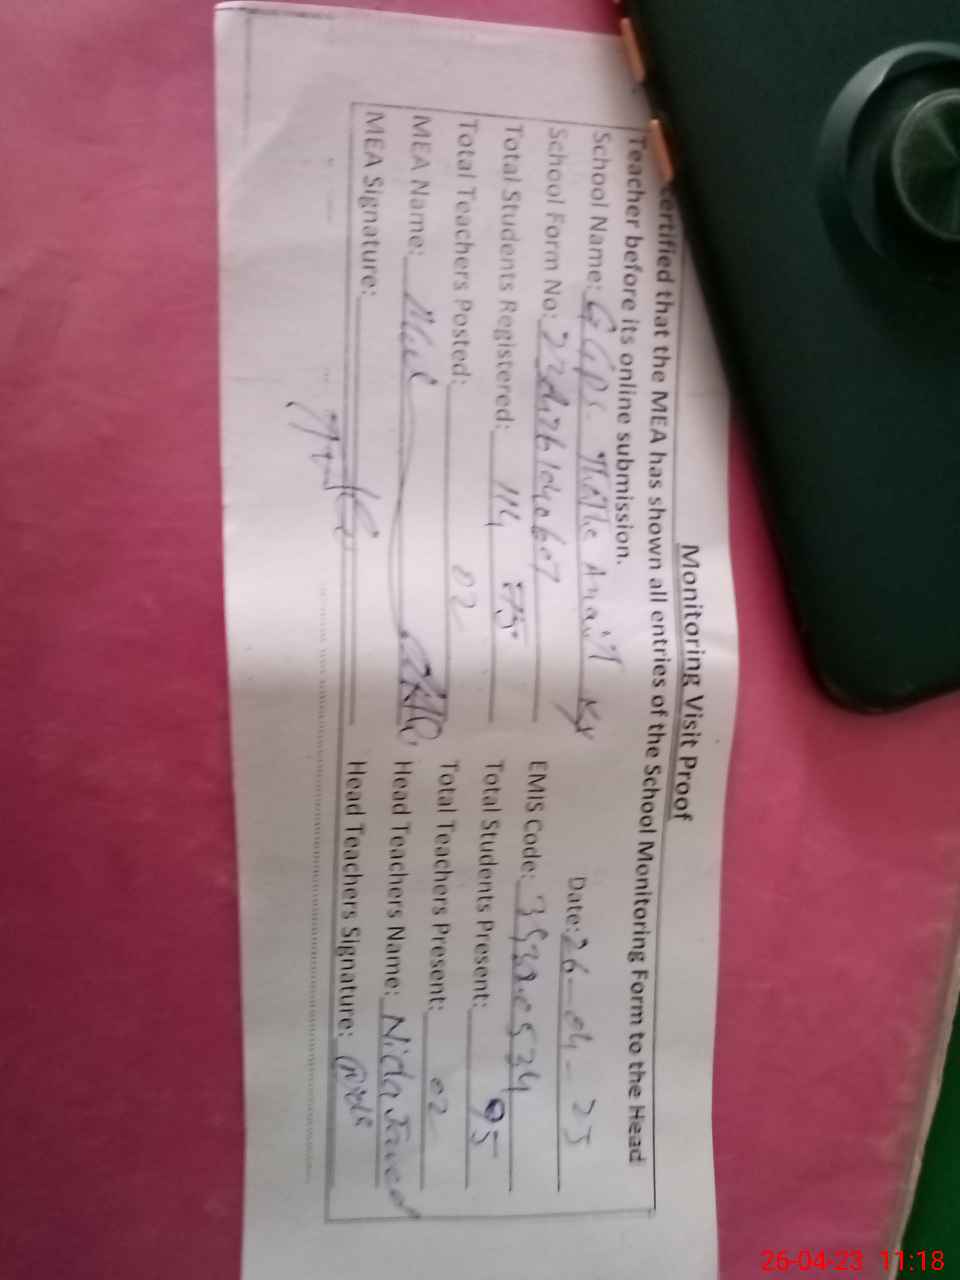 Monitoring Visit Proof
Certified that the MEA has shown all entries of the School Monitoring Form to the Head
Teacher before its online submission.
Date: 26-04-23
School Name: GGPS
School Form No: EMIS Code:
Total Students Registered: 114 Total Students Present: 95
Total Teachers Posted: 02 Total Teachers Present: 02
MEA Name: Head Teachers Name: Nida Javed
MEA Signature: Head Teachers Signature:
26-04-23 11:18